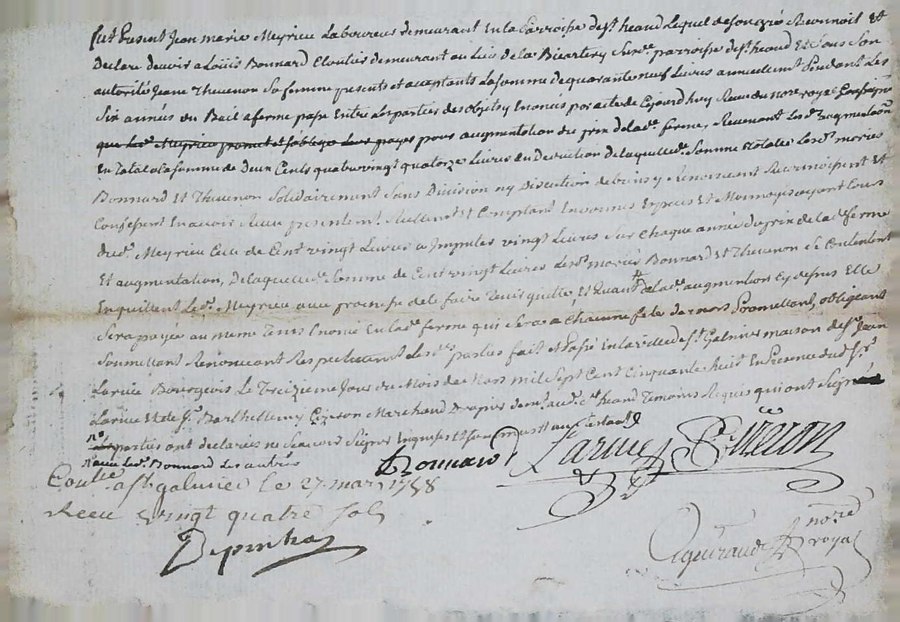 fut Present Jean marie Meyrieu Laboureur demeurant En la Parroisse de st. heand Lequel de son gré Reconnoit Et
Declare devoir a Loüis Bonnard Cloutier demeurant au Lieu de la Sure. parroisse de st. heand Et Sous Son
autorité Jeane Thevenon Sa femme presents et acceptants La somme de quarante neuf Livres annuellemt. Pendant Les
Six années du Bail a ferme passé Entre Les parties des objets y Enoncés par acte de Cejourdhuy Receu du nore. royal
que Led. Meyrieu promet et soblige Leur payer pour augmentation du prix de lade. ferme, Revenant Lesd. augmentaõn
En Total a la somme de deux Cents quatre vingt quatorze Livres En Deduction de laquelle de. Somme Totale Lesd. mariés
Bonnard Et Thevenon Solidairement Sans Division ny Discution de biens y Renonceant Reconnoissent Et
Confessent En avoir Receu presentement Reellement Et Comptant En bonnes Especes Et Monnoyes ayant Cours
dud. Meyrieu Celle de Cent vingt Livres a Imputer vingt Livres Sur Chaque année du prix de lade. ferme
Et augmentation, De laquelle de. Somme de Cent vingt Livres Lesd. mariés Bonnard Et Thevenon Se Contentent
En quittent Led. Meyrieu avec promesse de le faire Tenir quitte Et Quant a lade. augmentaõn Cy dessus Elle
Sera payée au meme Tems Enoncé En lade. ferme qui Sera a Chacune fete de Promettant, obligeant
Soumettant Renonceant Respectivement Lesd. parties fait et Passé En la ville de st. Galmier maison de sr. Jean
Larue Bourgeois Le Treizieme Jour du Mois de Mars Mil Sept Cent Cinquante huit En Presence dud. sr.
Larue Et de sr. Barthellemy Marchand Drapier demt. aud. st. heand Temoins Requis qui ont Signé
parties ont declarées ne Scavoir Signer Enquis Et Sommés
avec Led. Bonnard Les autres
Bonnard Larue
Contlé a st. galmier Le 27 mars 1758
Receu vingt quatre sols
nore
royal